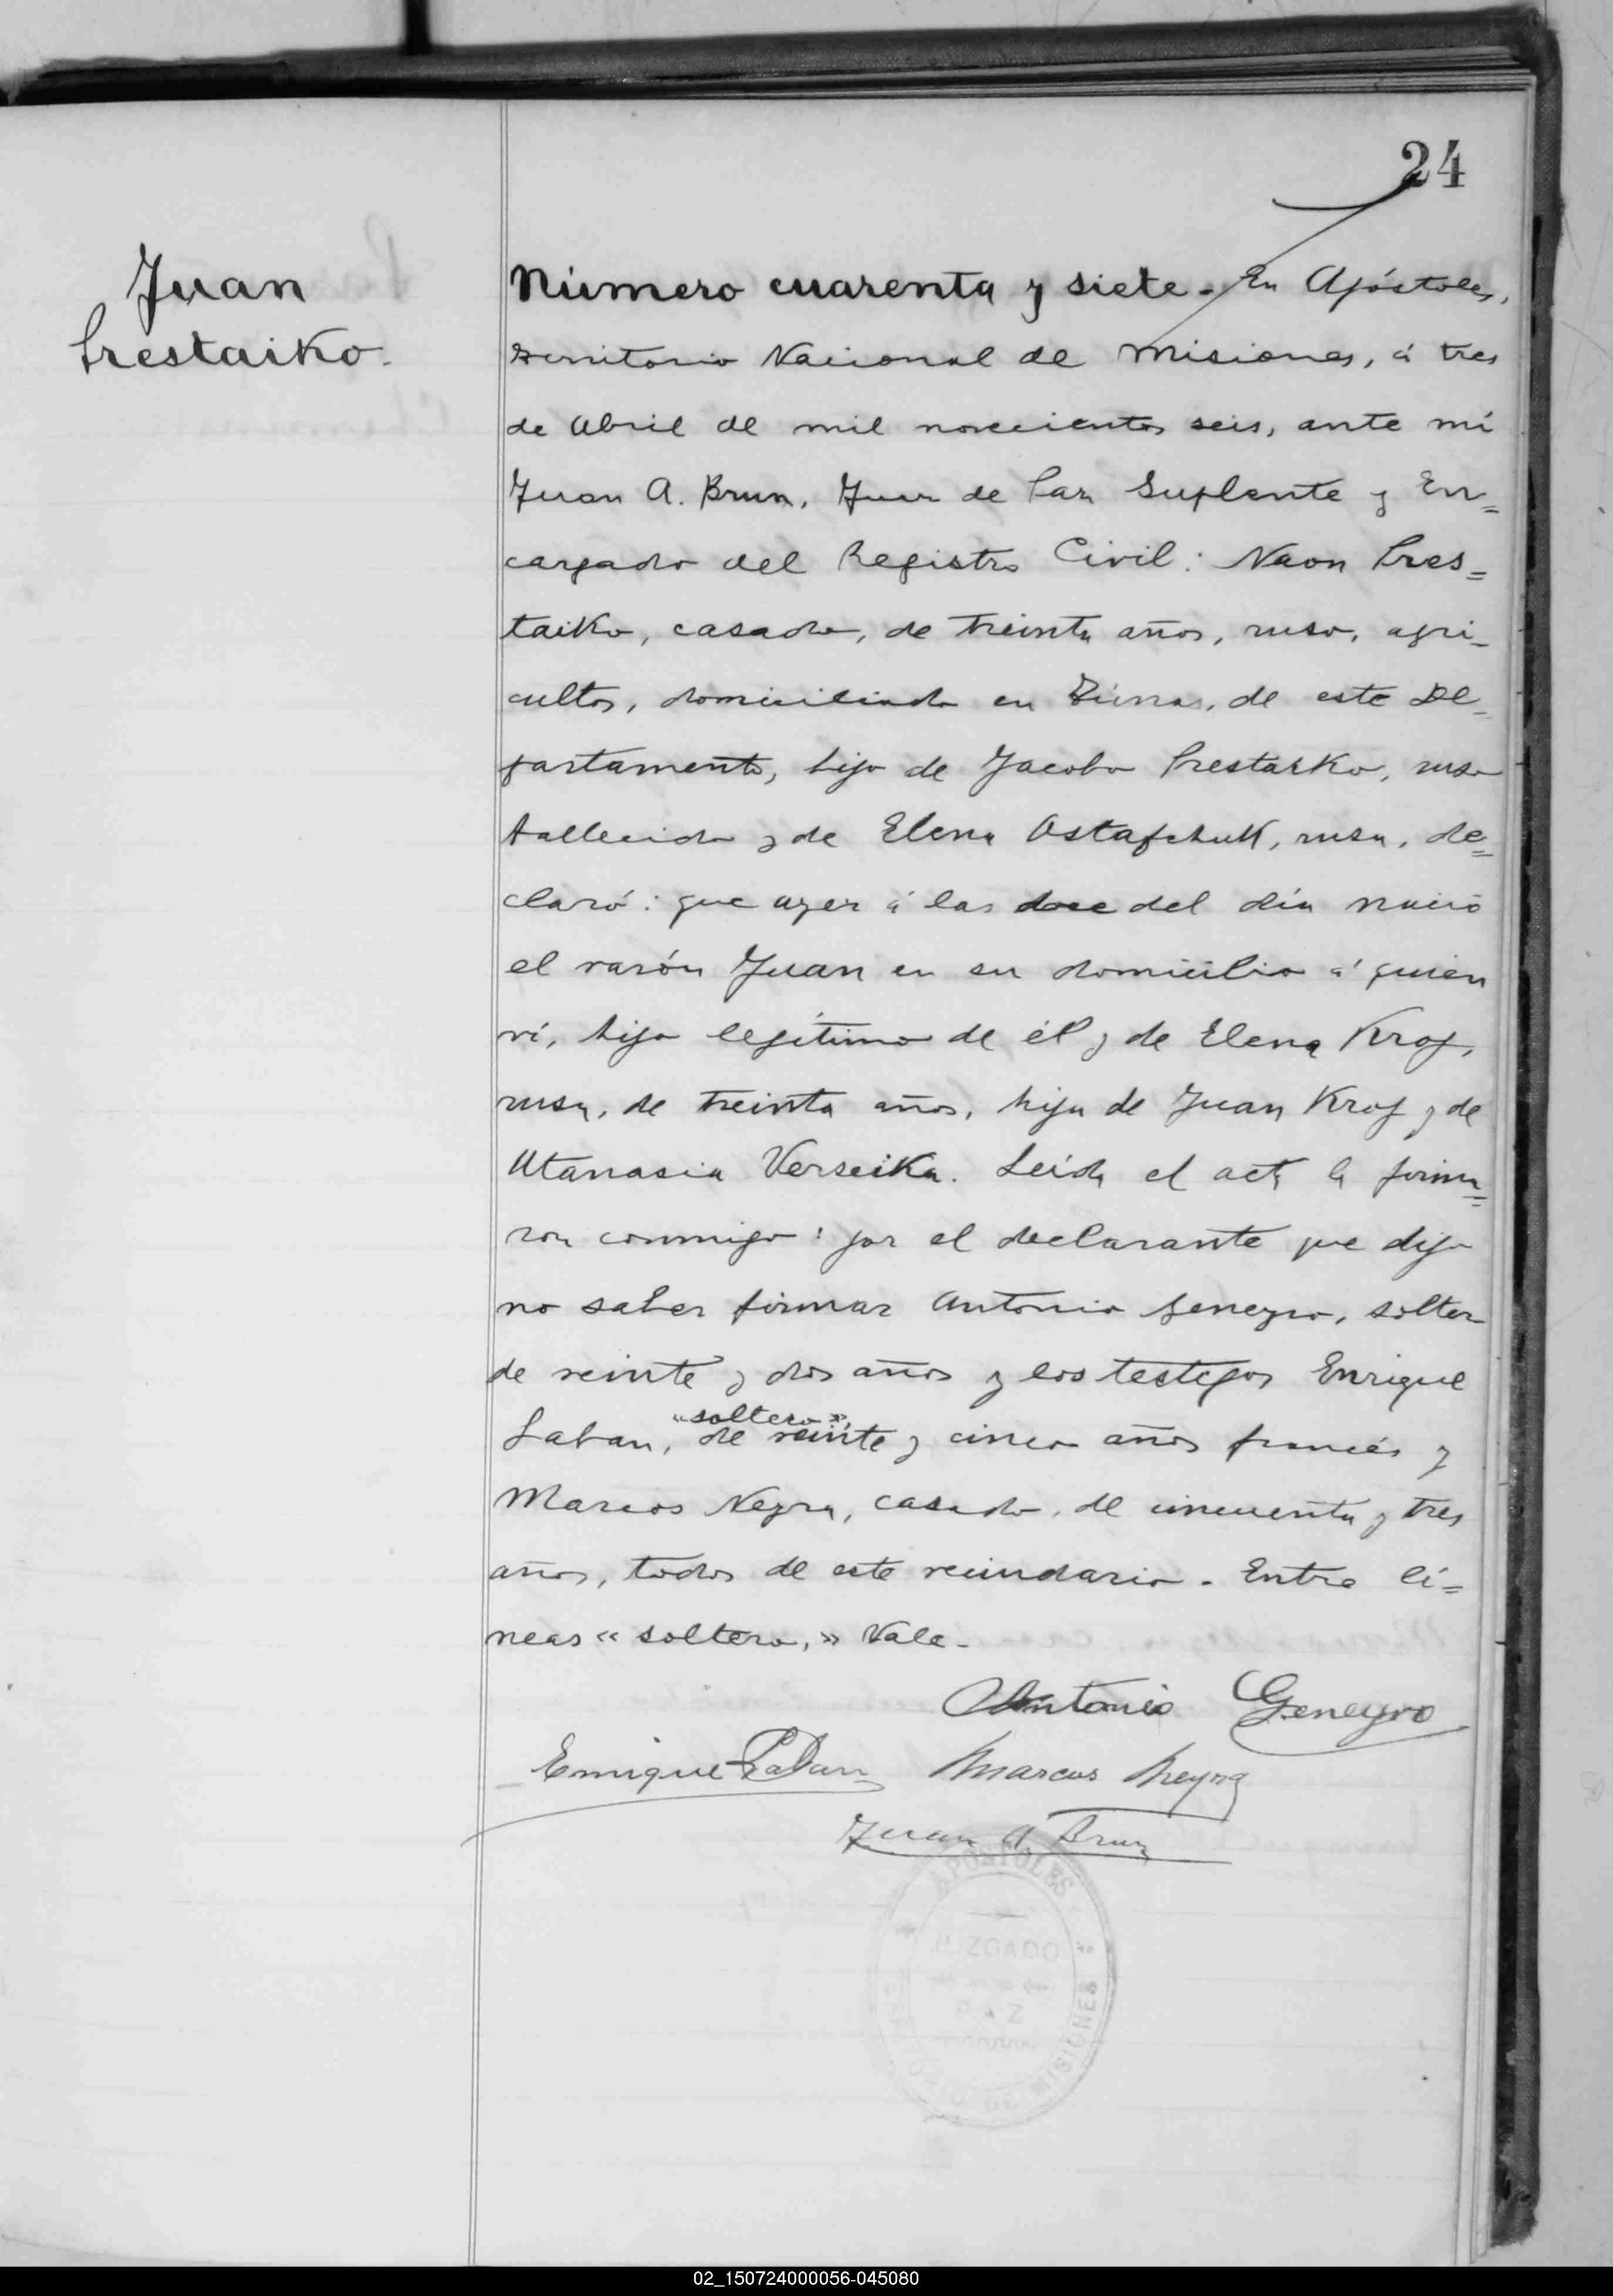 24
Juan
Prestaiko.
Número cuarenta y siete. En Apóstoles,
Territorio Nacional de Misiones, á tres
de Abril de mil novecientos seis, ante mí
Juan A. Brun, Juez de Paz Suplente y En=
cargado del Registro Civil: Naon Pres=
taiko, casado, de treinta años, ruso, agri-
cultor, domiciliado en, de este De-
partamento, hijo de Jacobo Prestaiko, ruso
fallecido y de Elena Ostafchuk, rusa, de=
claró: que ayer á las doce del día nació
el varón Juan en su domicilio á quien
ví, hijo legítimo de él y de Elena Krof,
rusa, de treinta años, hija de Juan Krof y de
Atanasia Verseika. Leída el acta la firma=
ron conmigo: por el declarante que dijo
no saber firmar Antonio Geneyro, soltero
de veinte y dos años y los testigos Enrique
«soltero,»
Laban, de veinte y cinco años francés y
Marcos Neyra, casado, de cincuenta y tres
años, todos de este vecindario. Entre lí=
neas «soltero,» Vale.
Antonio Geneyro
Enrique Laban Marcos Neyra
Juan A. Brun
APOSTOLES
JUZGADO
PAZ
DE MISIONES
02_150724000056-045080